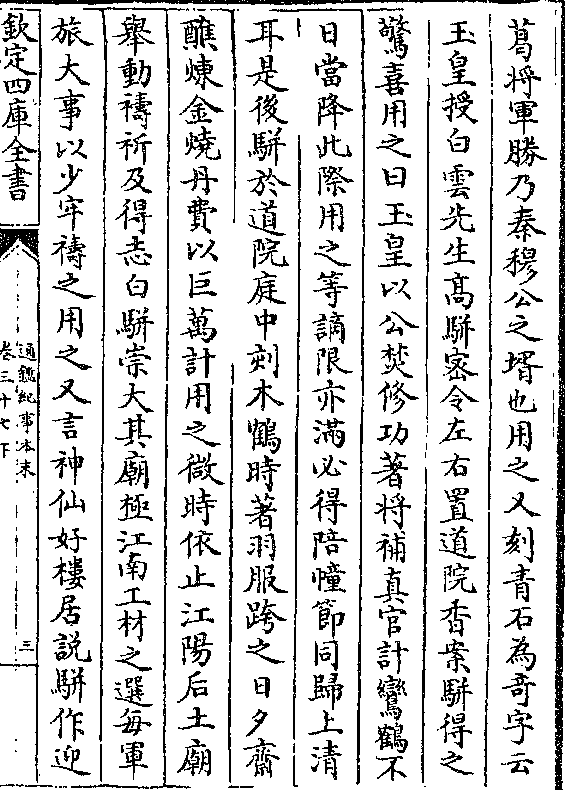 葛將軍勝乃秦穆公之壻也用之又刻青石為奇字云
玉皇授白雲先生高駢密令左右置道院香案駢得之
驚喜用之曰玉皇以公焚修功著將補真官計鸞鶴不
日當降此際用之等謫限亦滿必得陪幢節同歸上清
耳是後駢於道院庭中刻木鶴時著羽服跨之日夕齋
醮煉金燒丹費以巨萬計用之微時依止江陽后土廟
舉動禱祈及得志白駢崇大其廟極江南工材之選每軍
旅大事以少牢禱之用之又言神仙好樓居說駢作迎
欽定四庫全書
通鑑紀事本末
卷三十七下
三